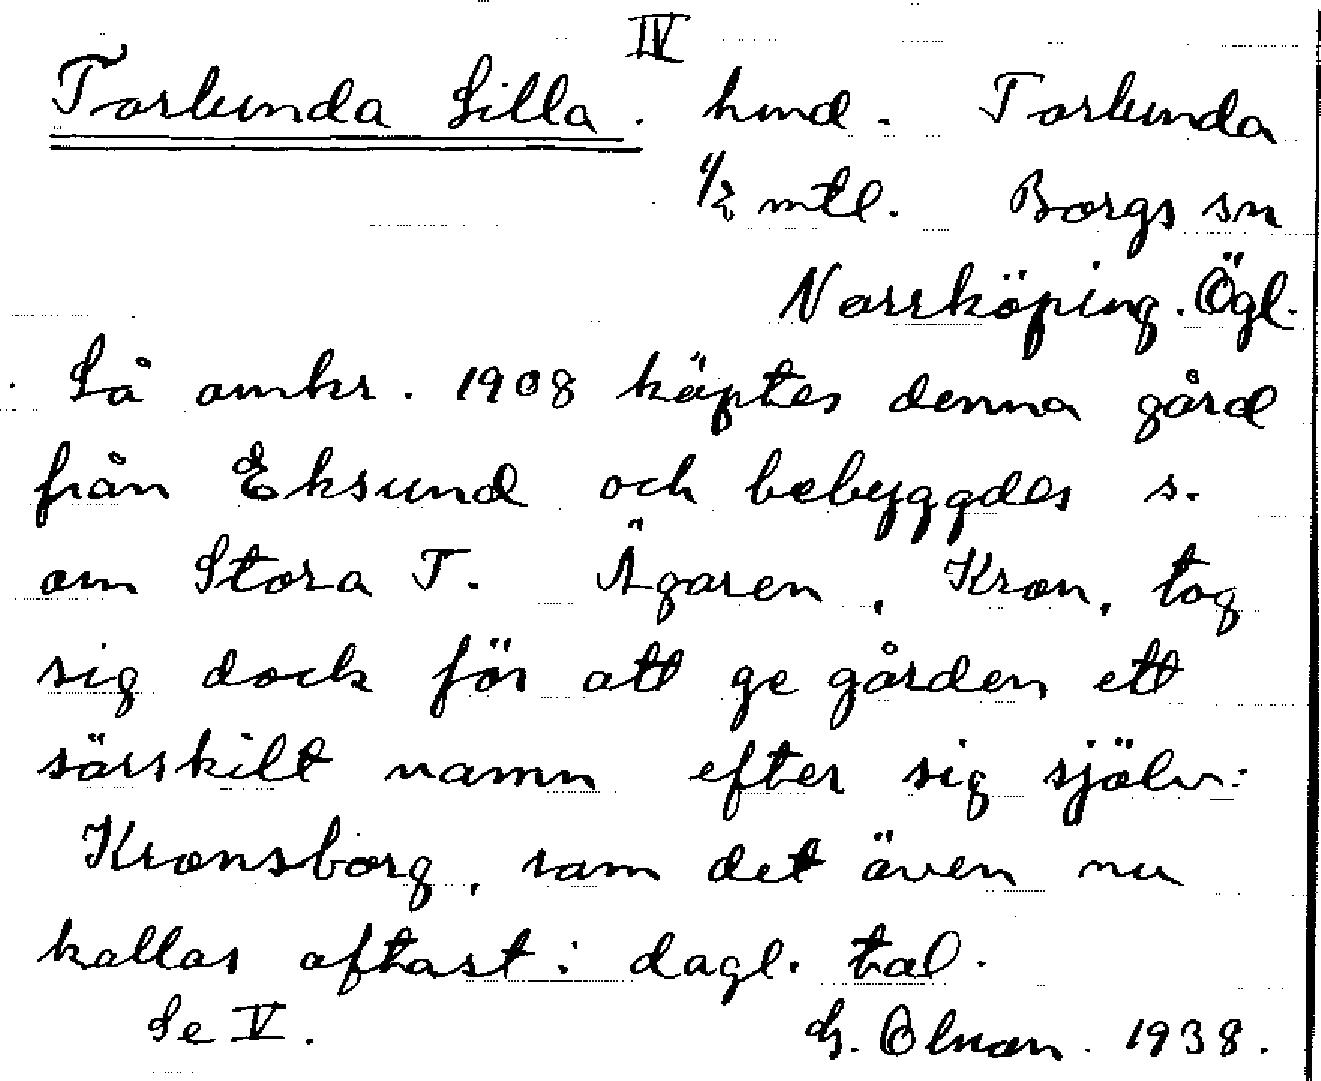 IV
Torlunda Lilla. hmd. Torlunda
1/2 mtl. Borgs sn
Norrköping. Ögl.
Så omkr. 1908 köptes denna gård
från Eksund och bebyggdes s.
om Stora T. Ägaren, Kron, tog
sig dock för att ge gården ett
särskilt namn efter sig själv:
Kronsborg, som det även nu
kallas oftast i dagl. tal.
Se V. G. Olson. 1938.